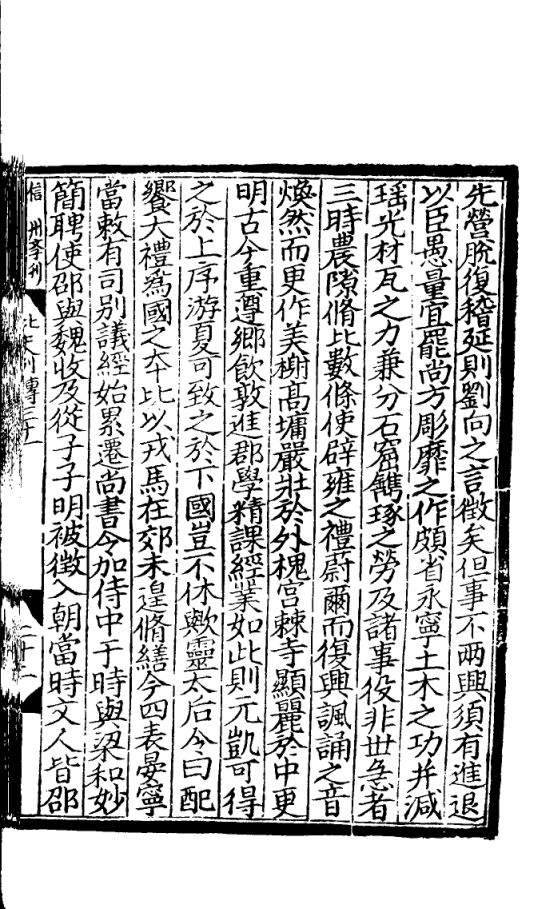 先營脫復稽延則劉向之言徵矣但事不兩興須有進退
以臣愚量宜罷尚方彫靡之作頗省永寧土木之功并減
瑶光材瓦之力兼分石窟鐫琢之勞及諸事役非世急者
三時農隙脩此數條使辟雍之禮蔚爾而復興諷誦之音
煥然而更作美榭高墉嚴壯於外槐宫棘寺顯麗於中更
明古今重遵鄉飲敦進郡學精課經業如此則元凱可得
之於上序游夏可致之於下國豈不休歟靈太后令曰配
饗大禮爲國之本比以戎馬在郊未遑脩繕今四表晏寧
當敕有司别議經始累遷尚書令加侍中于時與梁和妙
簡聘使邵與魏收及從子子明被徵入朝當時文人皆邵
信州李刊
北史列傳三十一
二十一